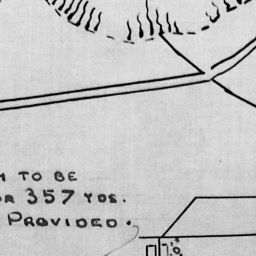 TO BE
357 YDS.
PROVIDED.